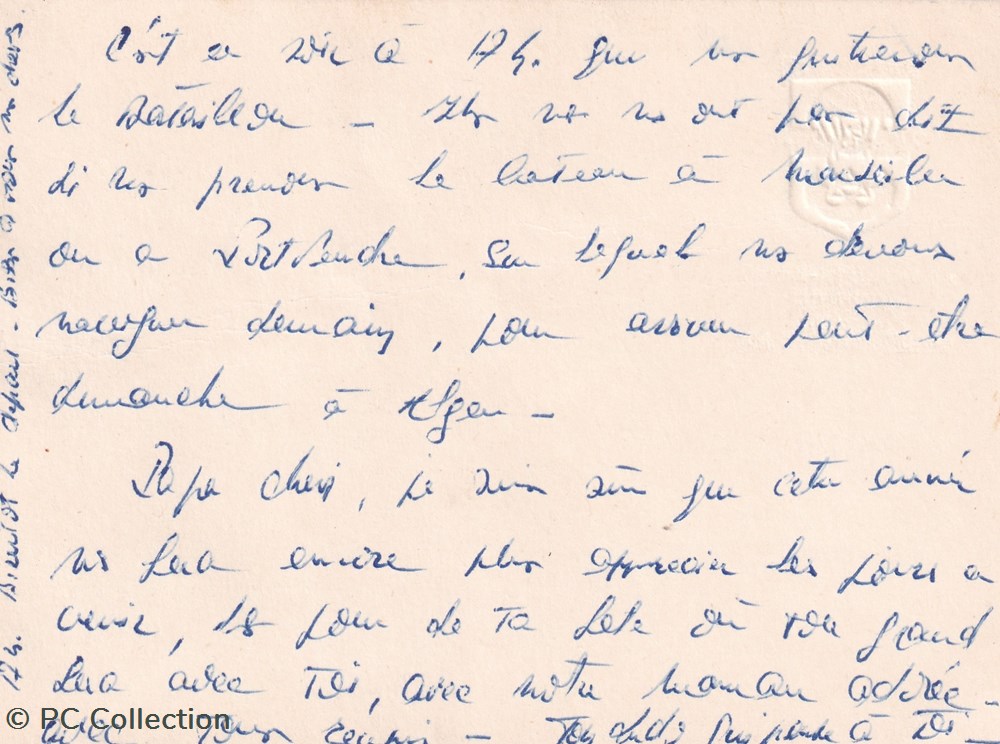 C'est ce soir à 17 h. que ns quitterons
le Bataillon - Ils ne ns ont pas dit
si ns prenons le bateau à Marseille
ou à Port Vendre, sur lequel ns devons
naviguer demain, pour arriver peut-être
dimanche à Alger -
Papa chéri, je suis sûr que cette année
ns fera encore plus apprécier les jours à
venir, les jour de ta fête où ton grand
sera avec Toi, avec notre maman adorée -
avec Tous réunis - à Toi -
17 h. Bientôt le départ -
© PC Collection